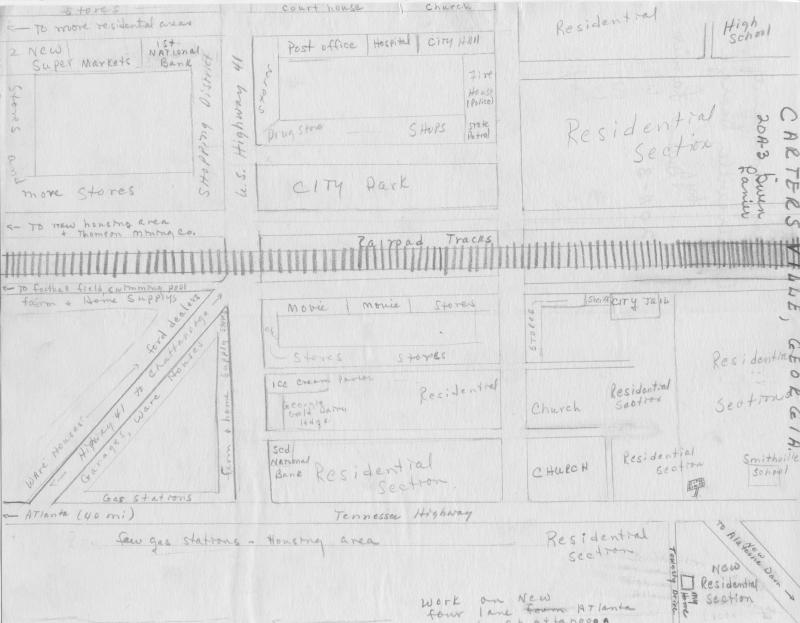 Stores
Court house | Church
← To more residential areas
2 New
Super Markets
1st
NATIONAL
Bank
Stores and
more Stores
SHopping District
U.S. Highway 41
Post office | Hospital | CiTy Hall
Drug Store
SHops
Fire
House
(Police)
State
Patrol
CITY Park
Residential
High
School
Residential
Section
CARTERSVILLE, GEORGIA
20A-3
← To new housing area
+ Thomson Mining Co.
Railroad Tracks
← To football field, swimming pool
Farm + Home Supplys
Ford dealers
Ware Houses
← Highway 41 To Chattanooga
Garages, Ware Houses
Farm + home Supply
Gas Stations
Movie | Movie | Stores
Stores Stores
Ice Cream Parlor
Georgia
Gold Dairy
Residential
Scd/
National
Bank
Residential
Section
STORES
CITY Jail
Church
Residential
Section
CHURCH
Residential
Section
Residential
Section
Smithville
School
← Atlanta (40 mi)
Tennessee Highway
few gas stations - Housing area
Residential
section
To Allatoona Dam
New
Residential
Section
my
Home
Drive
Work on New
four lane Atlanta